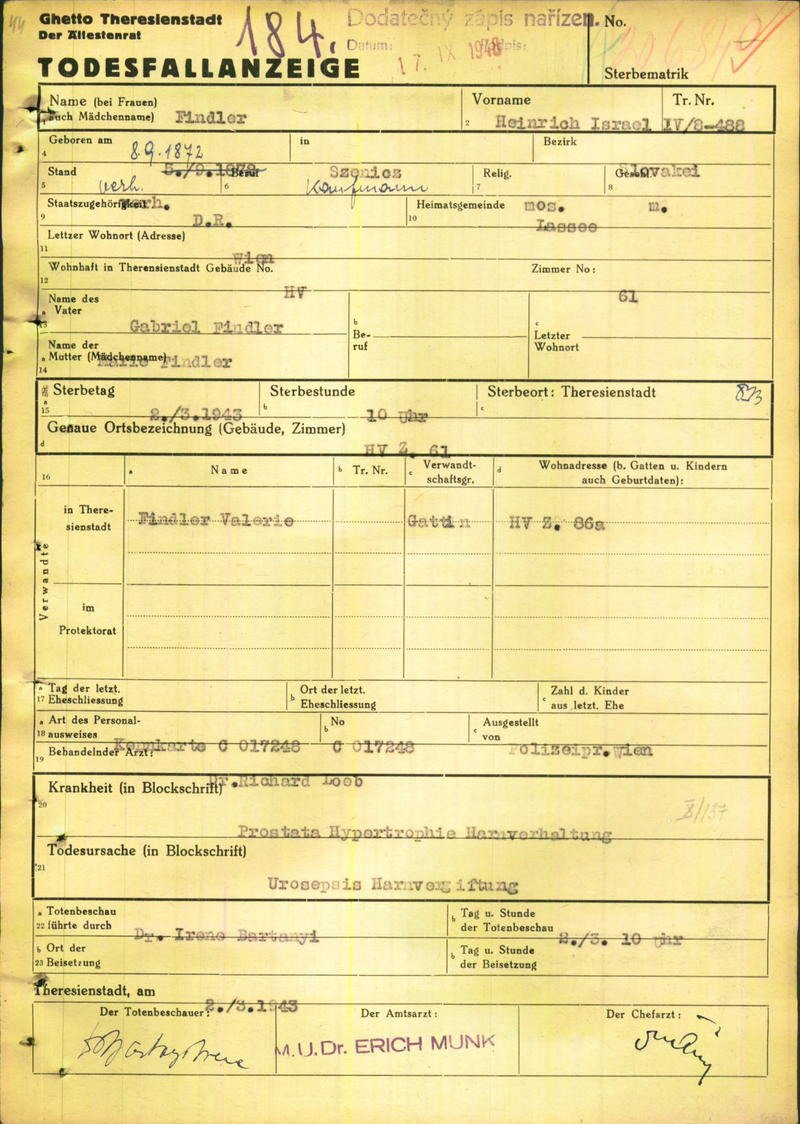 Ghetto Theresienstadt
Der Ältestenrat
184.
Dodatečný zápis nařízen.
Datum: 17. IX 1948
No.
TODESFALLANZEIGE
Sterbematrik
Name (bei Frauen)
auch Mädchenname) Findler
Vorname
2 Heinrich Israel
Tr. Nr.
IV/8-488
Geboren am
4 8.9.1872
5./9.1872
in
Szenicz
Bezirk
Slovakei
Stand
5 verh.
Beruf
6 Kaufmann
Relig.
7
Geschl.
8
Staatszugehörigkeit verh.
9 D.R.
Heimatsgemeinde mos. m.
10 Lassee
Letzter Wohnort (Adresse)
11 Wien
Wohnhaft in Therensienstadt Gebäude No.
12 HV
Zimmer No:
61
Name des
a Vater
13 Gabriel Findler
b
Be-
ruf
c
Letzter
Wohnort
Name der
a Mutter (Mädchenname)
14 Marie Findler
Sterbetag
a
15 2./3.1943
Sterbestunde
b 10 Uhr
Sterbeort: Theresienstadt
c
Genaue Ortsbezeichnung (Gebäude, Zimmer)
d HV Z. 61
16
a Name
b Tr. Nr.
c Verwandt-
schaftsgr.
d Wohnadresse (b. Gatten u. Kindern
auch Geburtdaten):
Verwandte
in There-
sienstadt
Findler Valerie Gattin HV Z. 86a
im
Protektorat
a Tag der letzt.
17 Eheschliessung
b Ort der letzt.
Eheschliessung
c Zahl d. Kinder
aus letzt. Ehe
a Art des Personal-
18 ausweises
Kennkarte C 017248
b No
C 017248
c Ausgestellt
von
Polizeipr.Wien
Behandelnder Arzt:
19 Dr.Richard Loeb
Krankheit (in Blockschrift)
20
X/137
Prostata Hypertrophie Harnverhaltung
Todesursache (in Blockschrift)
21
Urosepsis Harnvergiftung
a Totenbeschau
22 führte durch
Dr. Irene Bartanyi
b Tag u. Stunde
der Totenbeschau
2./3. 10 Uhr
b Ort der
23 Beisetzung
b Tag u. Stunde
der Beisetzung
Theresienstadt, am
2./3.1943
Der Totenbeschauer:
Der Amtsarzt:
Der Chefarzt:
M.U.Dr. ERICH MUNK